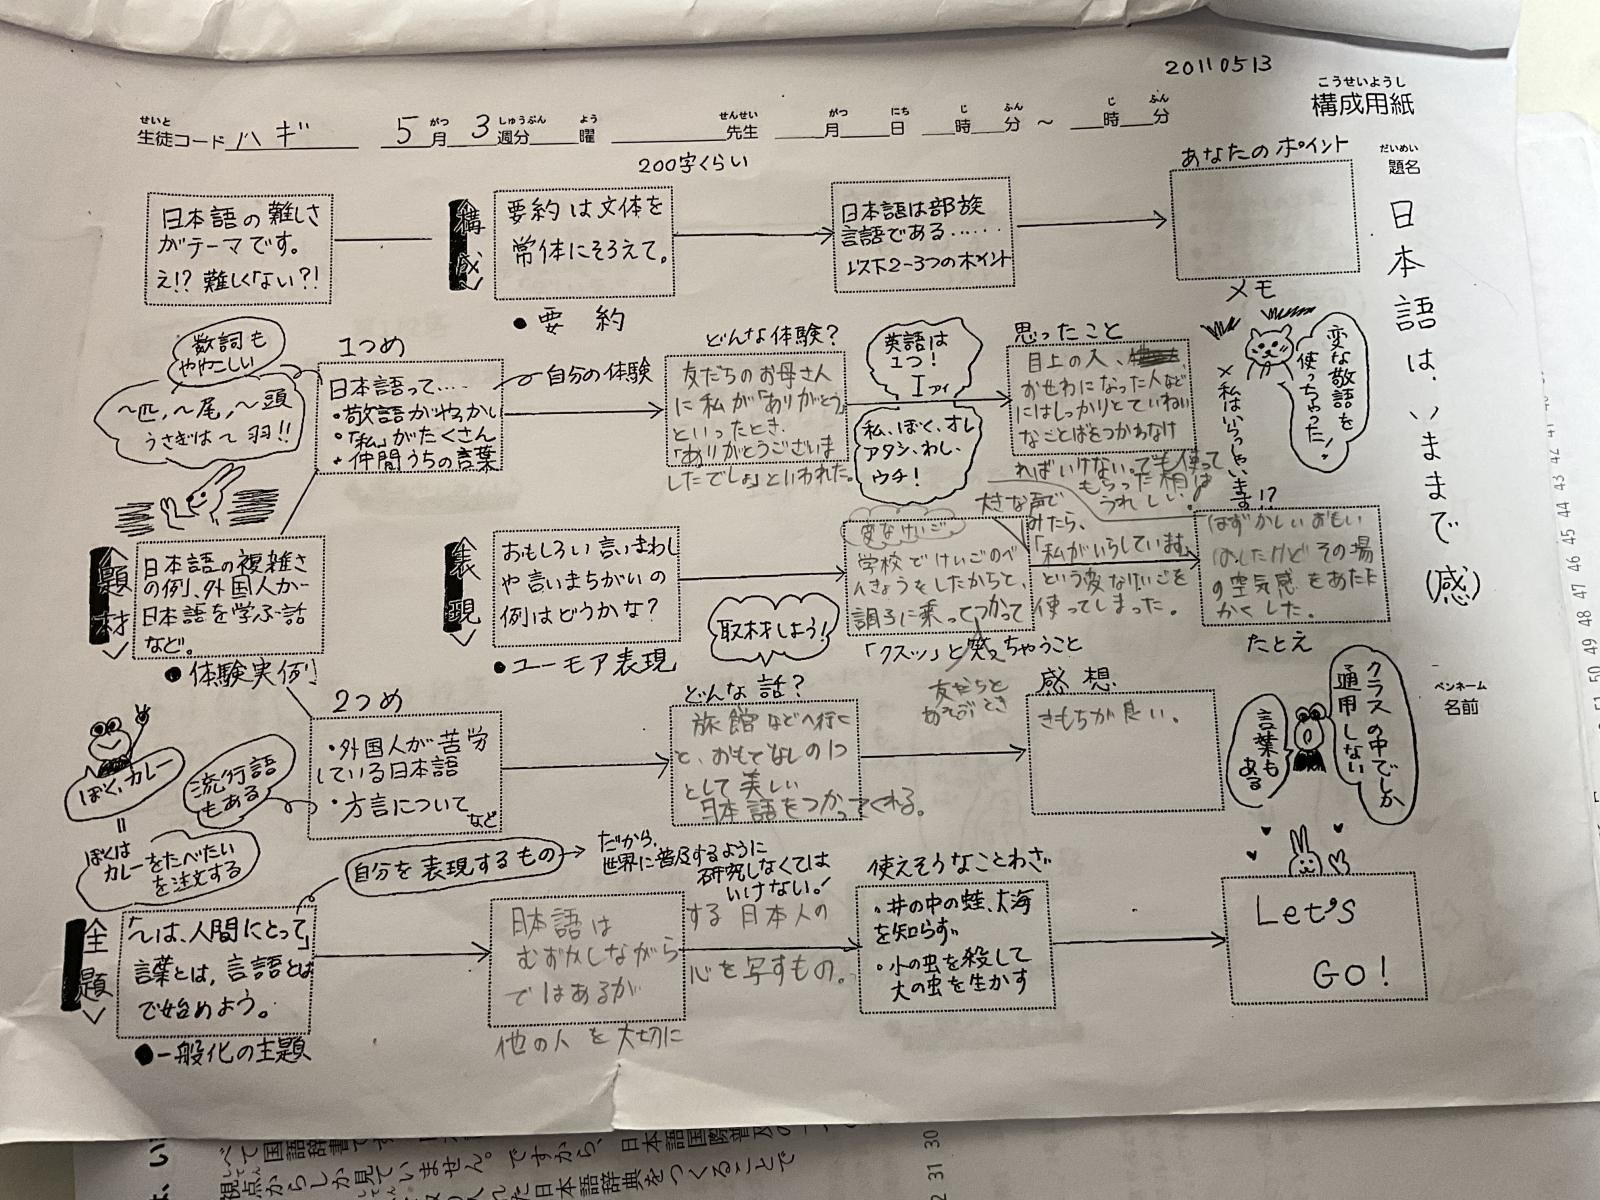 20110513
こうせいようし
構成用紙
せいと がつ しゅうぶん よう せんせい がつ にち じ ふん じ ふん
生徒コード ハギ 5月 3週分 曜 先生 月 日 時 分 ～ 時 分
200字くらい
だいめい
題名
日本語は、いままで(感)
ペンネーム
名前
日本語の難しさ
がテーマです。
え!? 難しくない?!
構成
要約は文体を
常体にそろえて。
●要約
日本語は部族
言語である……
以下2-3つのポイント
あなたのポイント
メモ
数詞も
ややこしい
～匹,～尾,～頭
うさぎは～羽!!
1つめ
日本語って….
・敬語がややかし
・「私」がたくさん
・仲間うちの言葉
自分の体験
どんな体験?
友だちのお母さん
に私が「ありがとう」
といったとき、
「ありがとうございま
したでしょ」といわれた。
英語は
1つ!
I アイ
私、ぼく、オレ
アタシ、わし、
ウチ!
思ったこと
目上の人、
おせわになった人など
にはしっかりとていねい
なことばをつかわなけ
ればいけない。でも使って
もらった相は
うれしい。
変な敬語を
使っちゃった!
×私はいらっしゃいます!?
題材
日本語の複雑さ
の例、外国人が
日本語を学ぶ話
など。
●体験実例
表現
おもしろい言いまわし
や言いまちがいの
例はどうかな?
●ユーモア表現
取材しよう!
変なけいご
学校でけいごのべ
んきょうをしたからと、
調子に乗ってつかって
大きな声で
みたら、
「私がいらしています」
という変なけいごを
使ってしまった。
「クスッ」と笑っちゃうこと
はずかしいおもい
はしたけどその場
の空気感をあたた
かくした。
たとえ
2つめ
・外国人が苦労
している日本語
・方言について
など
ぼく、カレー
＝
ぼくは
カレーをたべたい
を注文する
流行語
もある
どんな話?
旅館などへ行く
と、おもてなしの1つ
として美しい
日本語をつかってくれる。
友だちと
あそぶとき
感想
きもちが良い。
クラスの中でしか
通用しない
言葉も
ある
自分を表現するもの
だから、
世界に普及するように
研究しなくては
いけない!
主題
「～は、人間にとって」
言葉とは,言語とは
で始めよう。
●一般化の主題
日本語は
むずかしながら
ではあるが
他の人を大切に
する日本人の
心を写すもの。
使えそうなことわざ
・井の中の蛙、大海
を知らず
・小の虫を殺して
大の虫を生かす
Let's
GO!
べて国語辞書で
視点からしか見ていません。ですから、日本語国際普及の
れた日本語辞典をつくることで
42 43 44 45 46 47 48 49 50
30
31